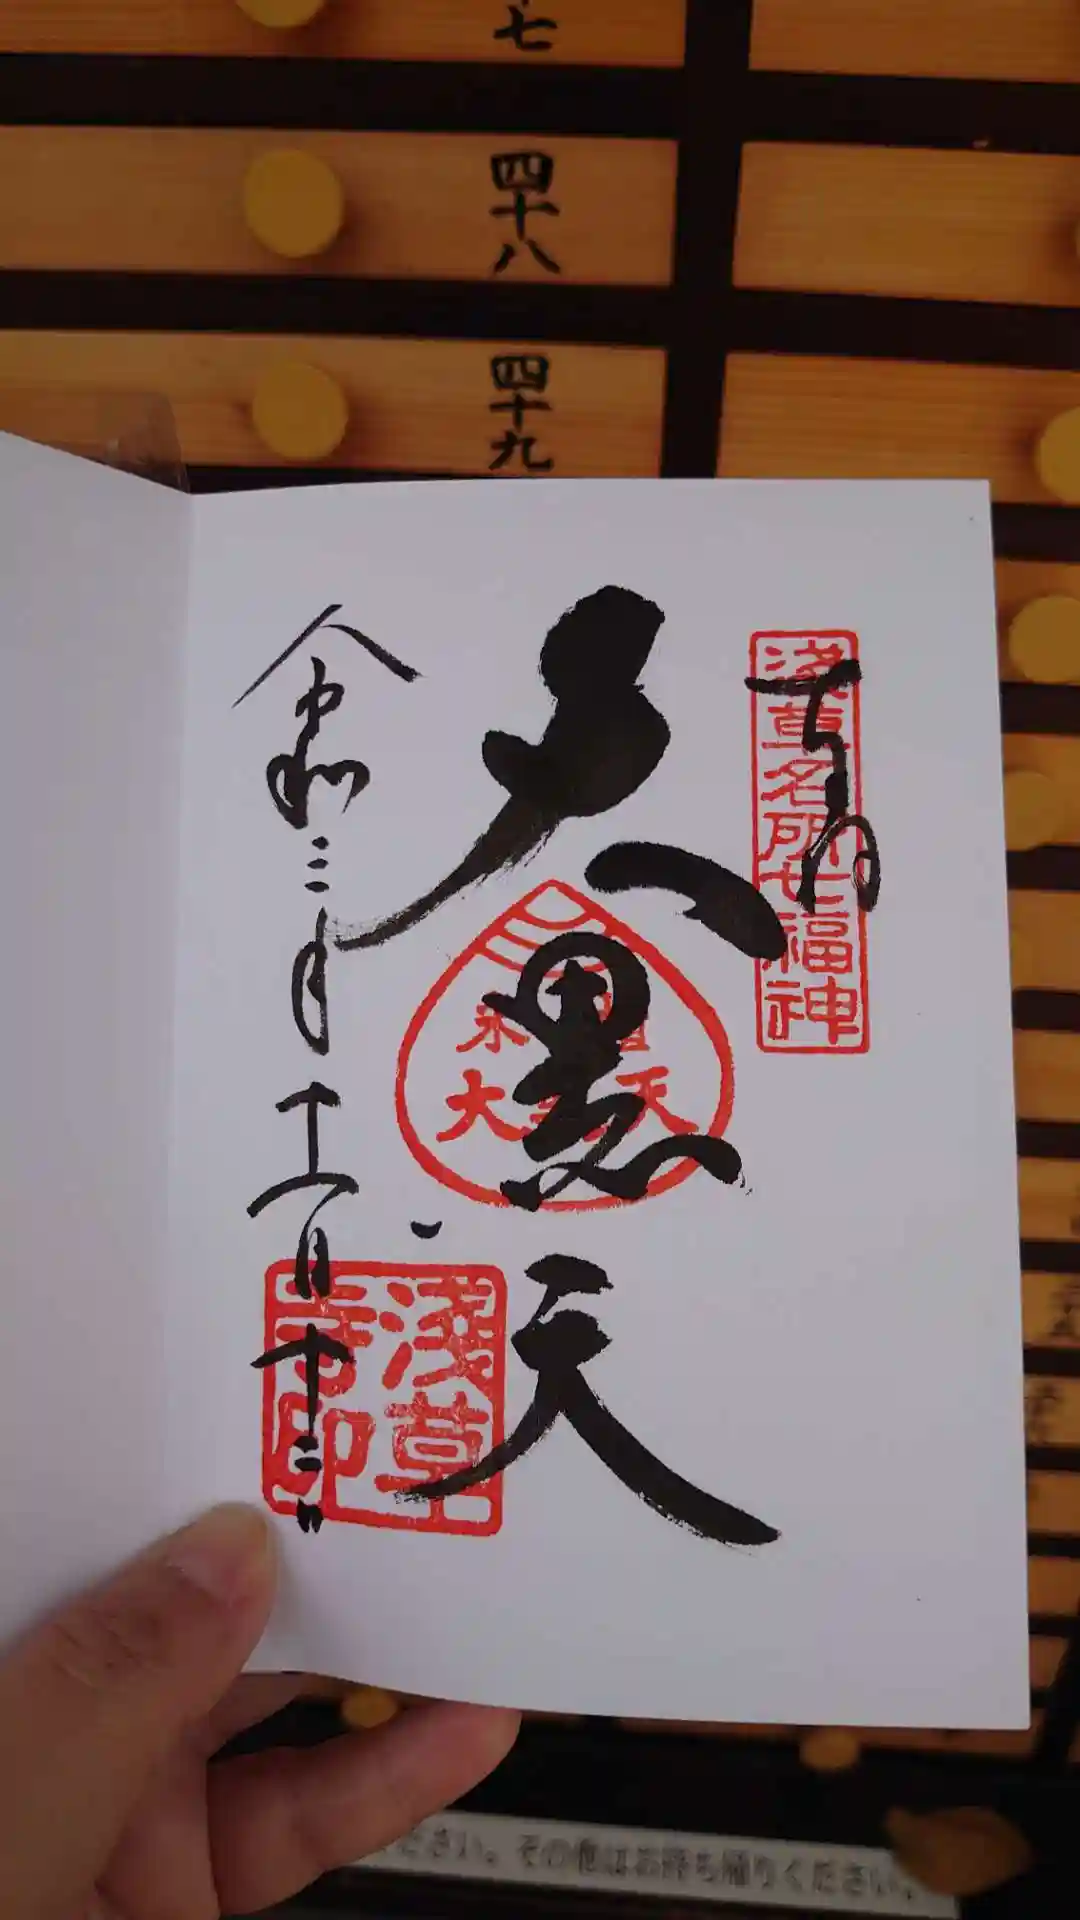 七
四十八
四十九
奉拝
浅草名所七福神
大黒天
大黒天
令和三年十一月十二日
浅草寺印
ださい。その他はお持ち帰りください。